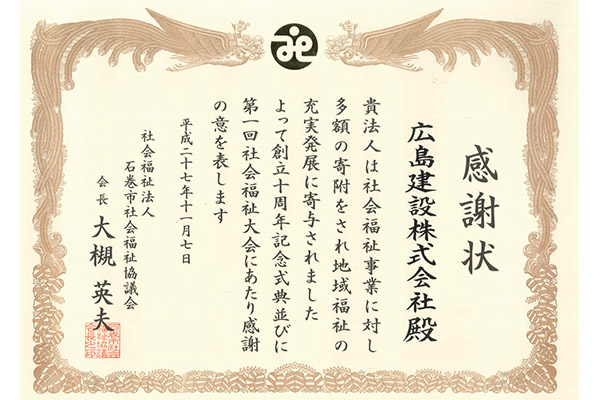 感謝状
広島建設株式会社殿
貴法人は社会福祉事業に対し
多額の寄附をされ地域福祉の
充実発展に寄与されました
よって創立十周年記念式典並びに
第一回社会福祉大会にあたり感謝
の意を表します
平成二十七年十一月七日
社会福祉法人
石巻市社会福祉協議会
会長 大槻英夫